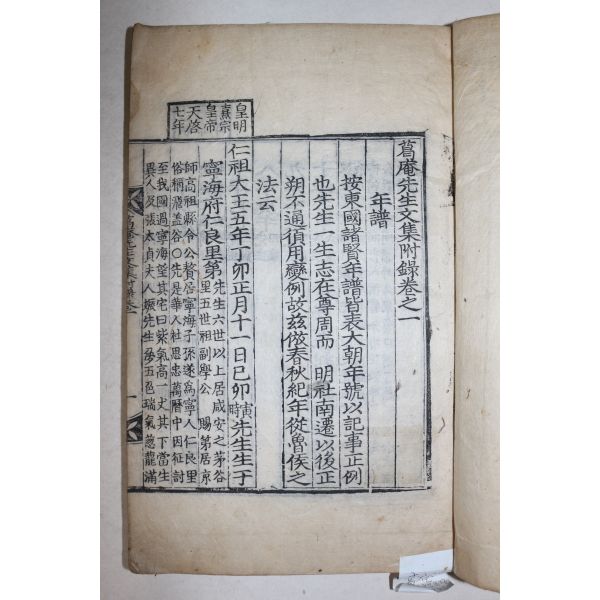 葛庵先生文集附錄卷之一
年譜
按東國諸賢年譜皆表大朝年號以記事正例
也先生一生志在尊周而 明社南遷以後正
朔不通須用變例故玆倣春秋紀年從魯侯之
法云
皇明
熹宗
皇帝
天啓
七年
仁祖大王五年丁卯正月十一日己卯寅時先生生于
寧海府仁良里第
先生六世以上居咸安之茅谷
里五世祖副學公 賜第居京
師高祖縣令公贅居寧海子孫遂爲寧人仁良里
俗稱飛盖谷〇先是華人社思忠萬曆中因征討
至我國過寧海望其宅曰紫氣高一丈其下當生
異人及張太貞夫人娠先生夢五色瑞氣葱蘢滿